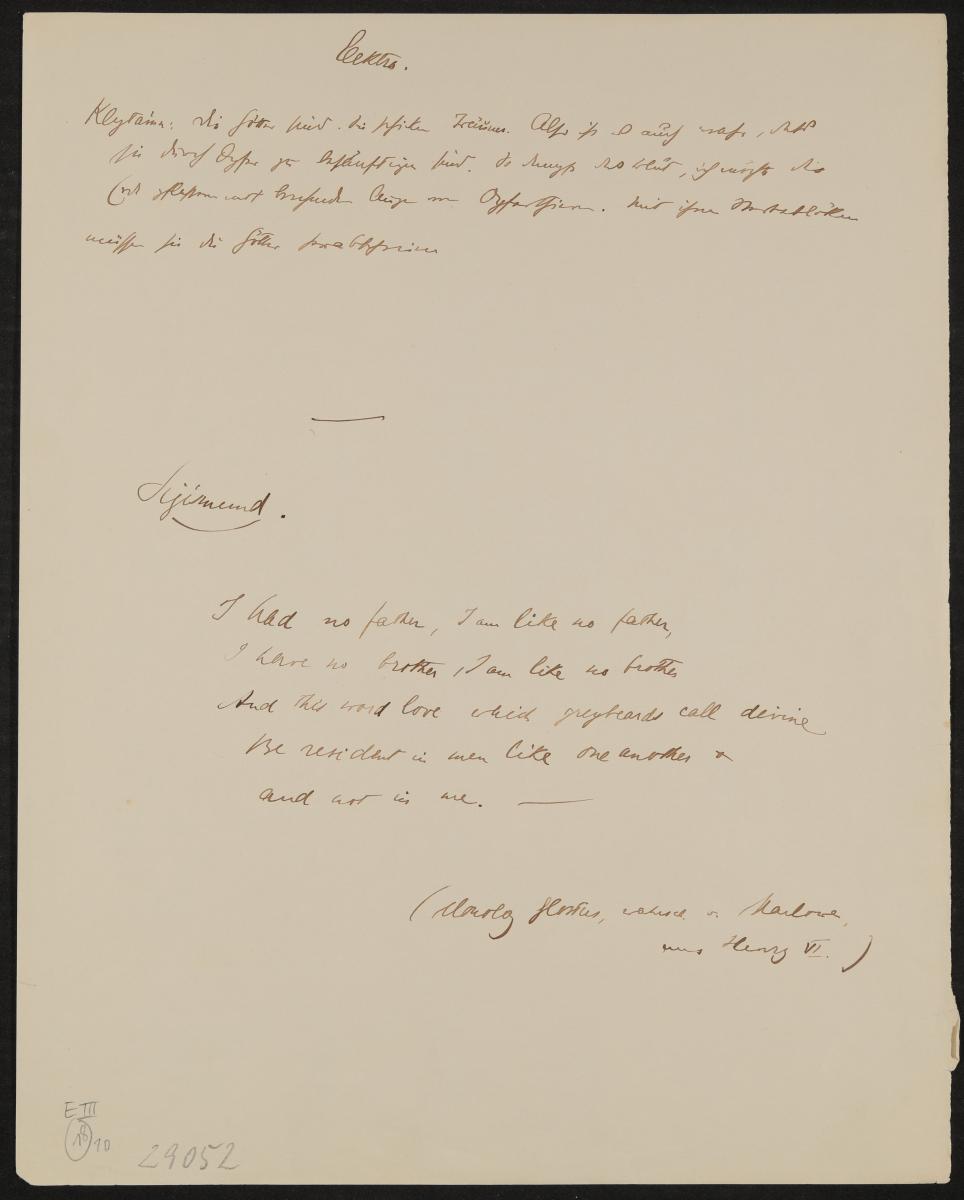 Elektra.
Klytämn: die Götter sind. sie schicken Träume. Also ist es auch wahr, dass
sie durch Opfer zu besänftigen sind. so dampft das Blut, ich möchte die
Augen von Opferthieren. mit ihren
müssen sie die Götter
Sigismund.
I had no father, I am like no father,
I have no brother, I am like no brother
And this word love which greybeards call divine
Be resident in men like one another
and not in me. —
(Monolog Glosters, wahrsch v. Marlowe,
aus Henry VI.)
E III
18 10
29052